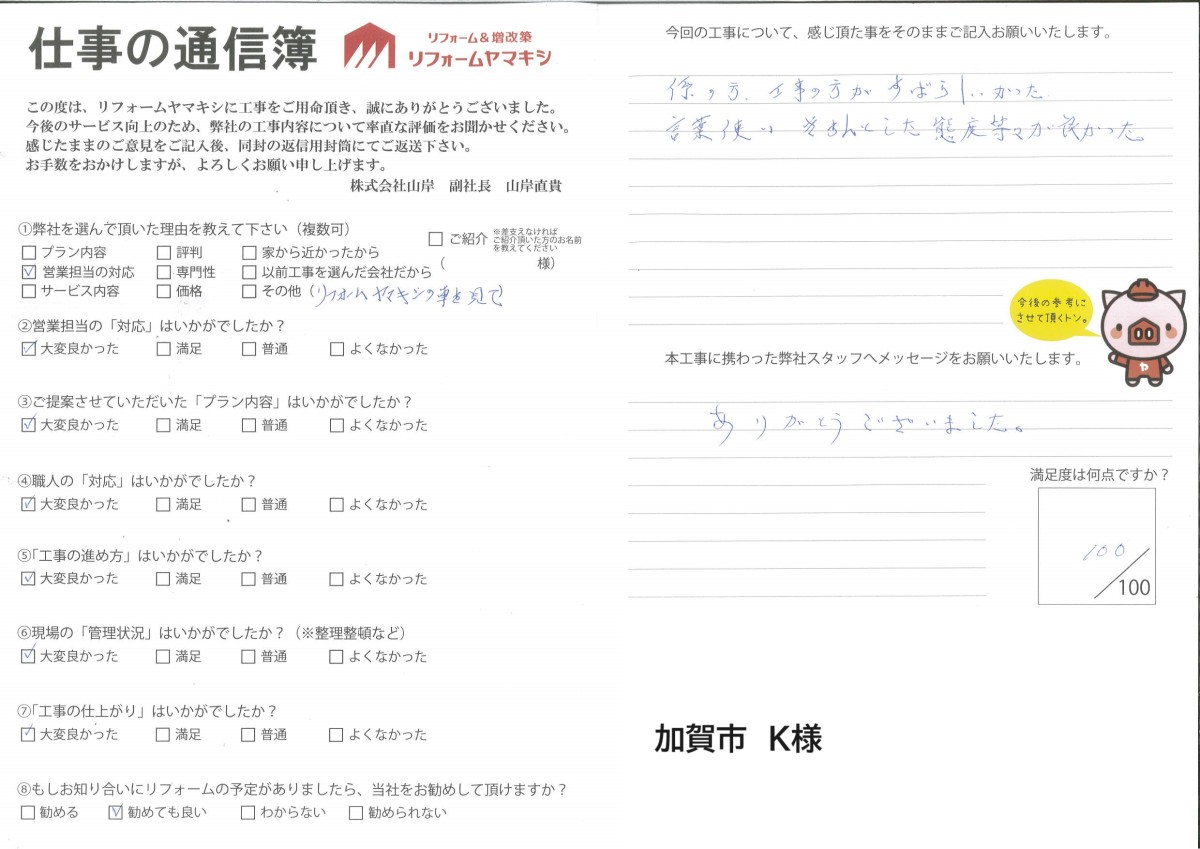 仕事の通信簿
リフォーム&増改築
リフォームヤマキシ
この度は、リフォームヤマキシに工事をご用命頂き、誠にありがとうございました。
今後のサービス向上のため、弊社の工事内容について率直な評価をお聞かせください。
感じたままのご意見をご記入後、同封の返信用封筒にてご返送下さい。
お手数をおかけしますが、よろしくお願い申し上げます。
株式会社山岸 副社長 山岸直貴
①弊社を選んで頂いた理由を教えて下さい(複数可)
□プラン内容 □評判 □家から近かったから
☑営業担当の対応 □専門性 □以前工事を選んだ会社だから
□サービス内容 □価格 □その他(リフォームヤマキシの車を見て)
□ご紹介 ※差支えなければ
ご紹介頂いた方のお名前
を教えてください
( 様)
②営業担当の「対応」はいかがでしたか?
☑大変良かった □満足 □普通 □よくなかった
③ご提案させていただいた「プラン内容」はいかがでしたか?
☑大変良かった □満足 □普通 □よくなかった
④職人の「対応」はいかがでしたか?
☑大変良かった □満足 □普通 □よくなかった
⑤「工事の進め方」はいかがでしたか?
☑大変良かった □満足 □普通 □よくなかった
⑥現場の「管理状況」はいかがでしたか?(※整理整頓など)
☑大変良かった □満足 □普通 □よくなかった
⑦「工事の仕上がり」はいかがでしたか?
☑大変良かった □満足 □普通 □よくなかった
⑧もしお知り合いにリフォームの予定がありましたら、当社をお勧めして頂けますか?
□勧める ☑勧めても良い □わからない □勧められない
今回の工事について、感じ頂た事をそのままご記入お願いいたします。
係の方、工事の方がすばらしかった
言葉使い きちんとした態度等々が良かった
今後の参考に
させて頂くトン。
ヤ
本工事に携わった弊社スタッフへメッセージをお願いいたします。
ありがとうございました。
満足度は何点ですか?
100/100
加賀市 K様